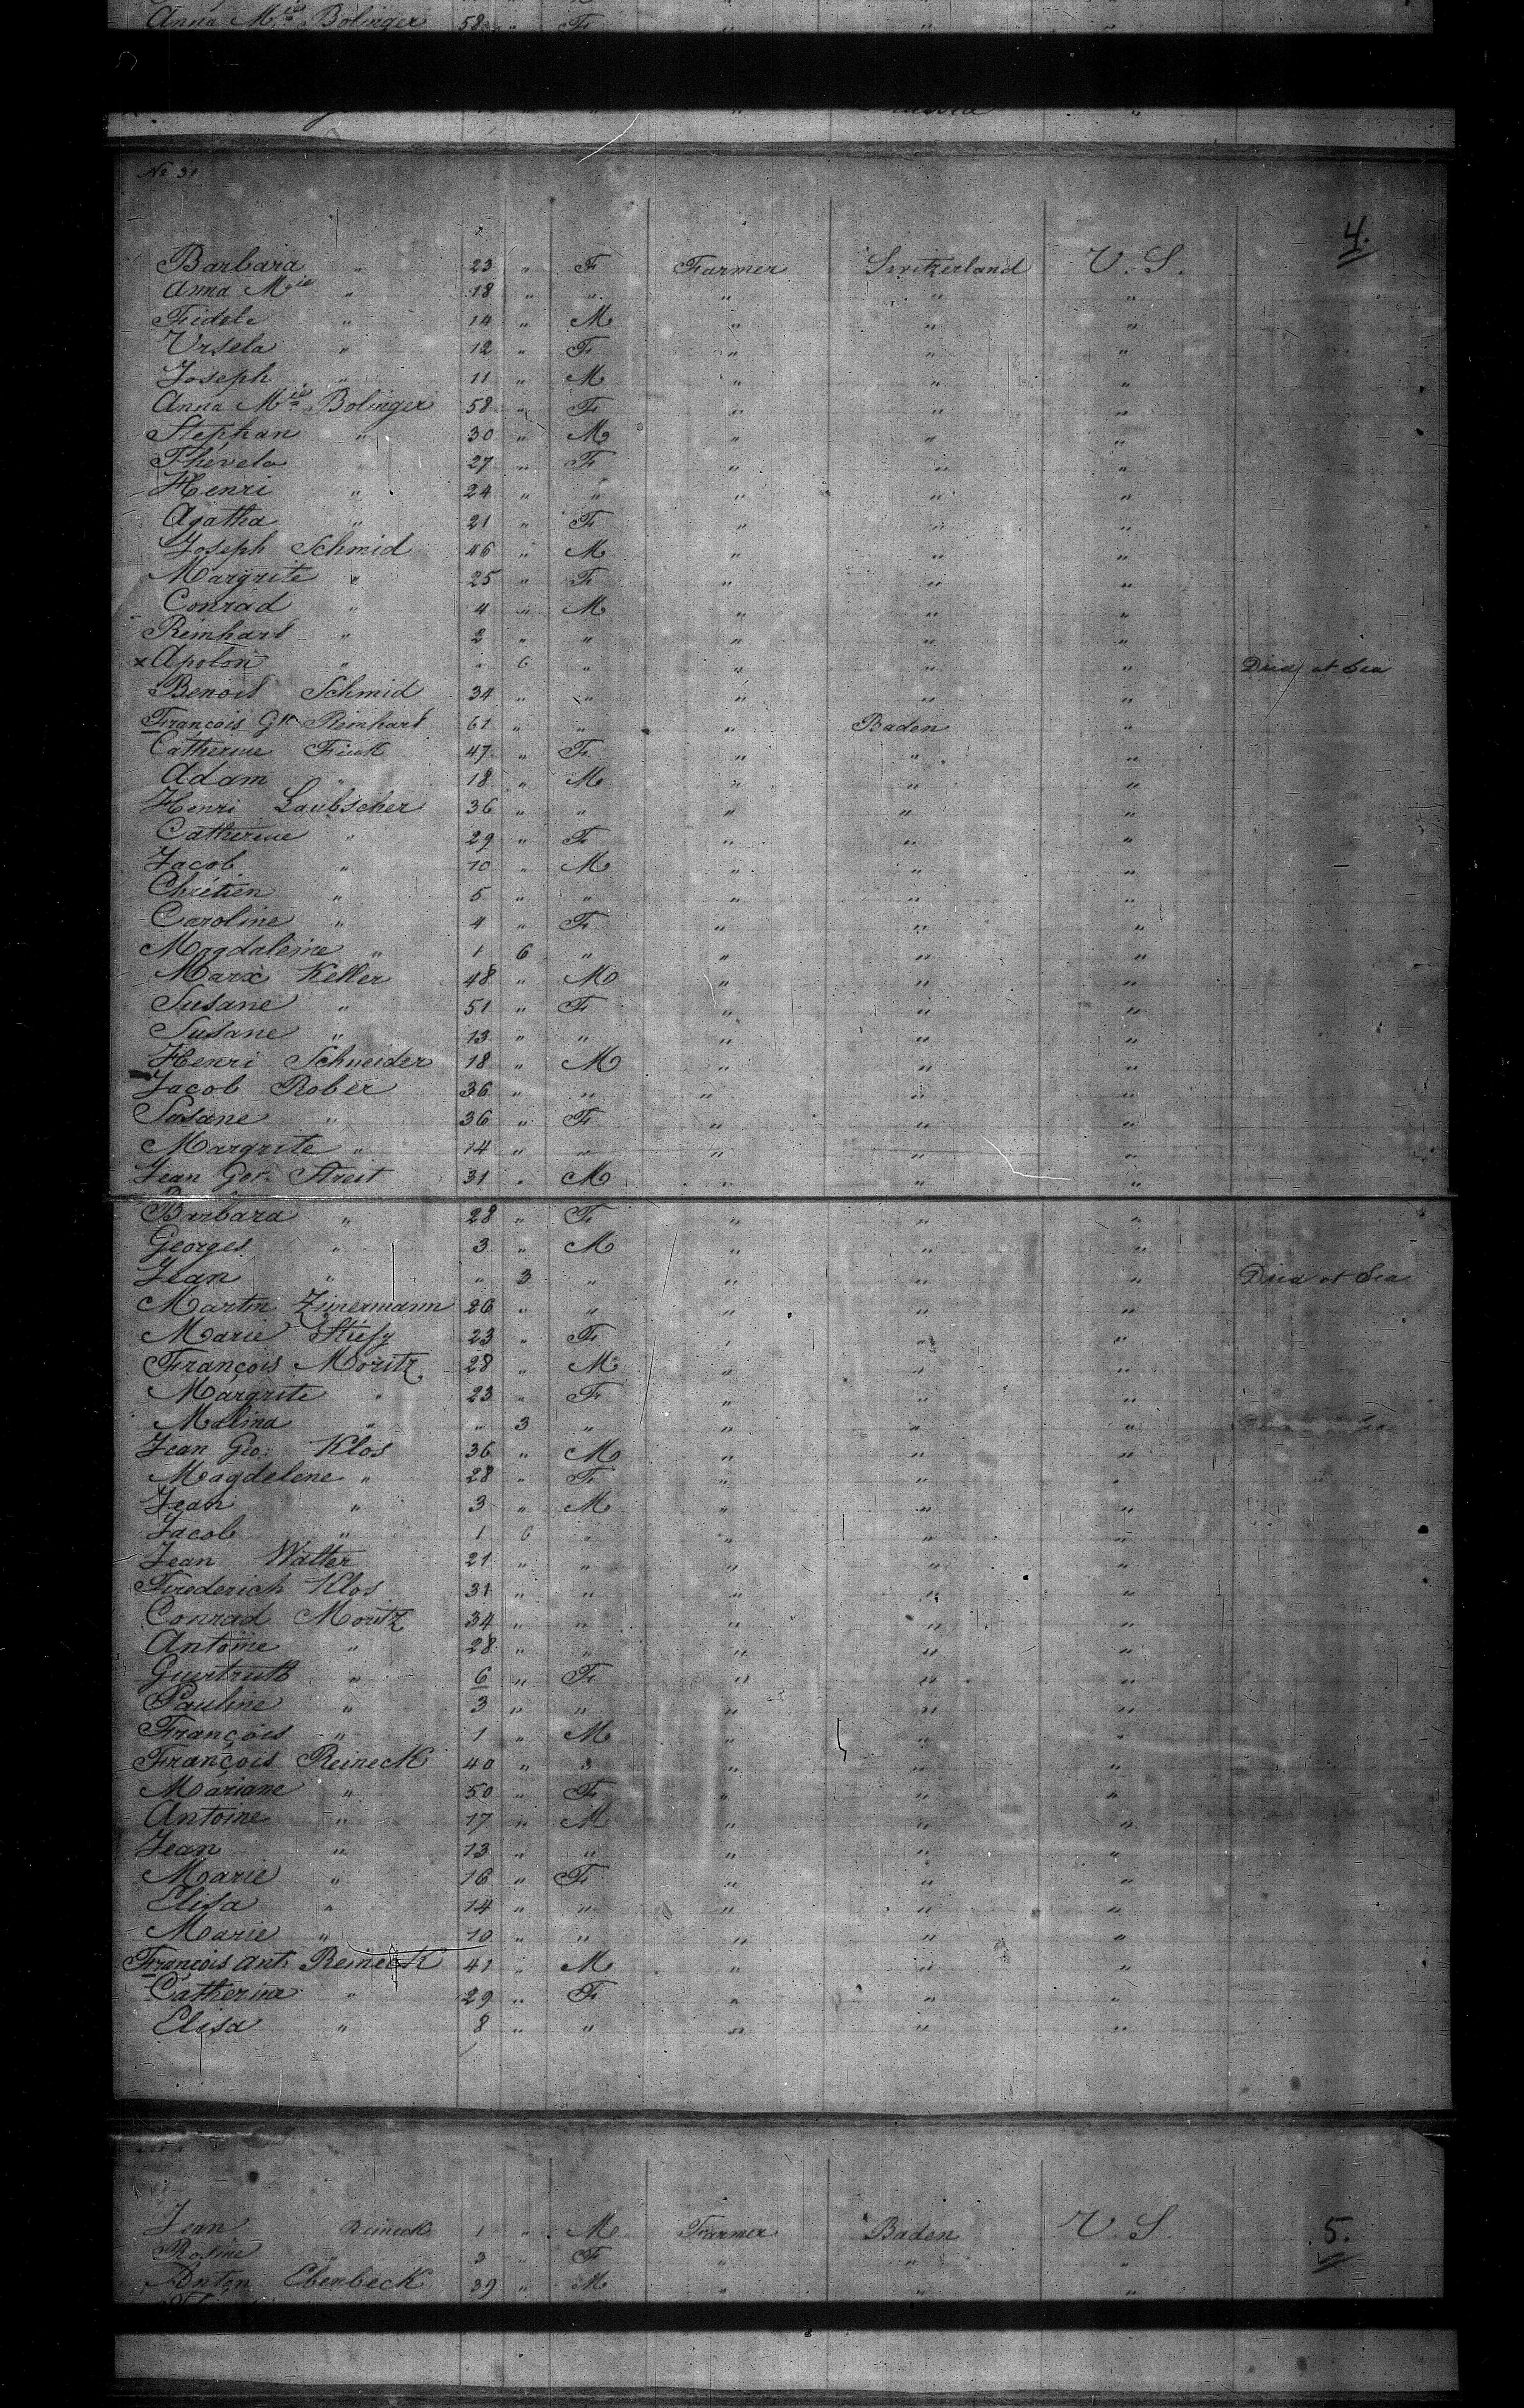 Anna Mie Bolinger 58 " F " " "
No 31
4.
Barbara " 23 " F Farmer Switzerland U. S.
Anna Mie " 18 " " " " "
Fidele " 14 " M " " "
Ursela " 12 " F " " "
Joseph " 11 " M " " "
Anna Mie Bolinger 58 " F " " "
Stephan " 30 " M " " "
Thevela " 27 " F " " "
Henri " 24 " " " " "
Agatha " 21 " F " " "
Joseph Schmid 46 " M " " "
Margrite " 25 " F " " "
Conrad " 4 " M " " "
Reinhart " 2 " " " " "
x Apolon " " 6 " " " " Died at Sea
Benoit Schmid 34 " " " " "
François Reinhart 61 " " " Baden "
Catherine Fink 47 " F " " "
Adam " 18 " M " " "
Henri Laubscher 36 " " " " "
Catherine " 29 " F " " "
Jacob " 10 " M " " "
Chrétien " 5 " " " " "
Caroline " 4 " F " " "
Magdaleine " 1 6 " " " "
Marx Keller 48 " M " " "
Susane " 51 " F " " "
Susane " 13 " " " " "
Henri Schneider 18 " M " " "
Jacob Rober 36 " " " " "
Susane " 36 " F " " "
Margrite " 14 " " " " "
Jean Geo. Streit 31 " M " " "
Barbara " 28 " F " " "
Georges " 3 " M " " "
Jean " " 3 " " " " Died at Sea
Martin Zimermann 26 " " " " "
Marie 23 " F " " "
François Moritz 28 " M " " "
Margrite " 23 " F " " "
Malina " " 3 " " " "
Jean Geo. Klos 36 " M " " "
Magdelene " 28 " F " " "
Jean " 3 " M " " "
Jacob " 1 6 " " " "
Jean Walter 21 " " " " "
Frederich Klos 31 " " " " "
Conrad Moritz 34 " " " " "
Antoine " 28 " " " " "
Guertruth " 6 " F " " "
Pauline " 3 " " " " "
François " 1 " M " " "
François Reineck 40 " " " " "
Mariane " 50 " F " " "
Antoine " 17 " M " " "
Jean " 13 " " " " "
Marie " 16 " F " " "
Elisa " 14 " " " " "
Marie " 10 " " " " "
François Ant. Reineck 41 " M " " "
Catherine " 29 " F " " "
Elisa " 8 " " " " "
Jean Reineck 1 " M Farmer Baden U. S.
5.
Rosine " 3 " F " " "
Anton Ebenbeck 39 " M " " "